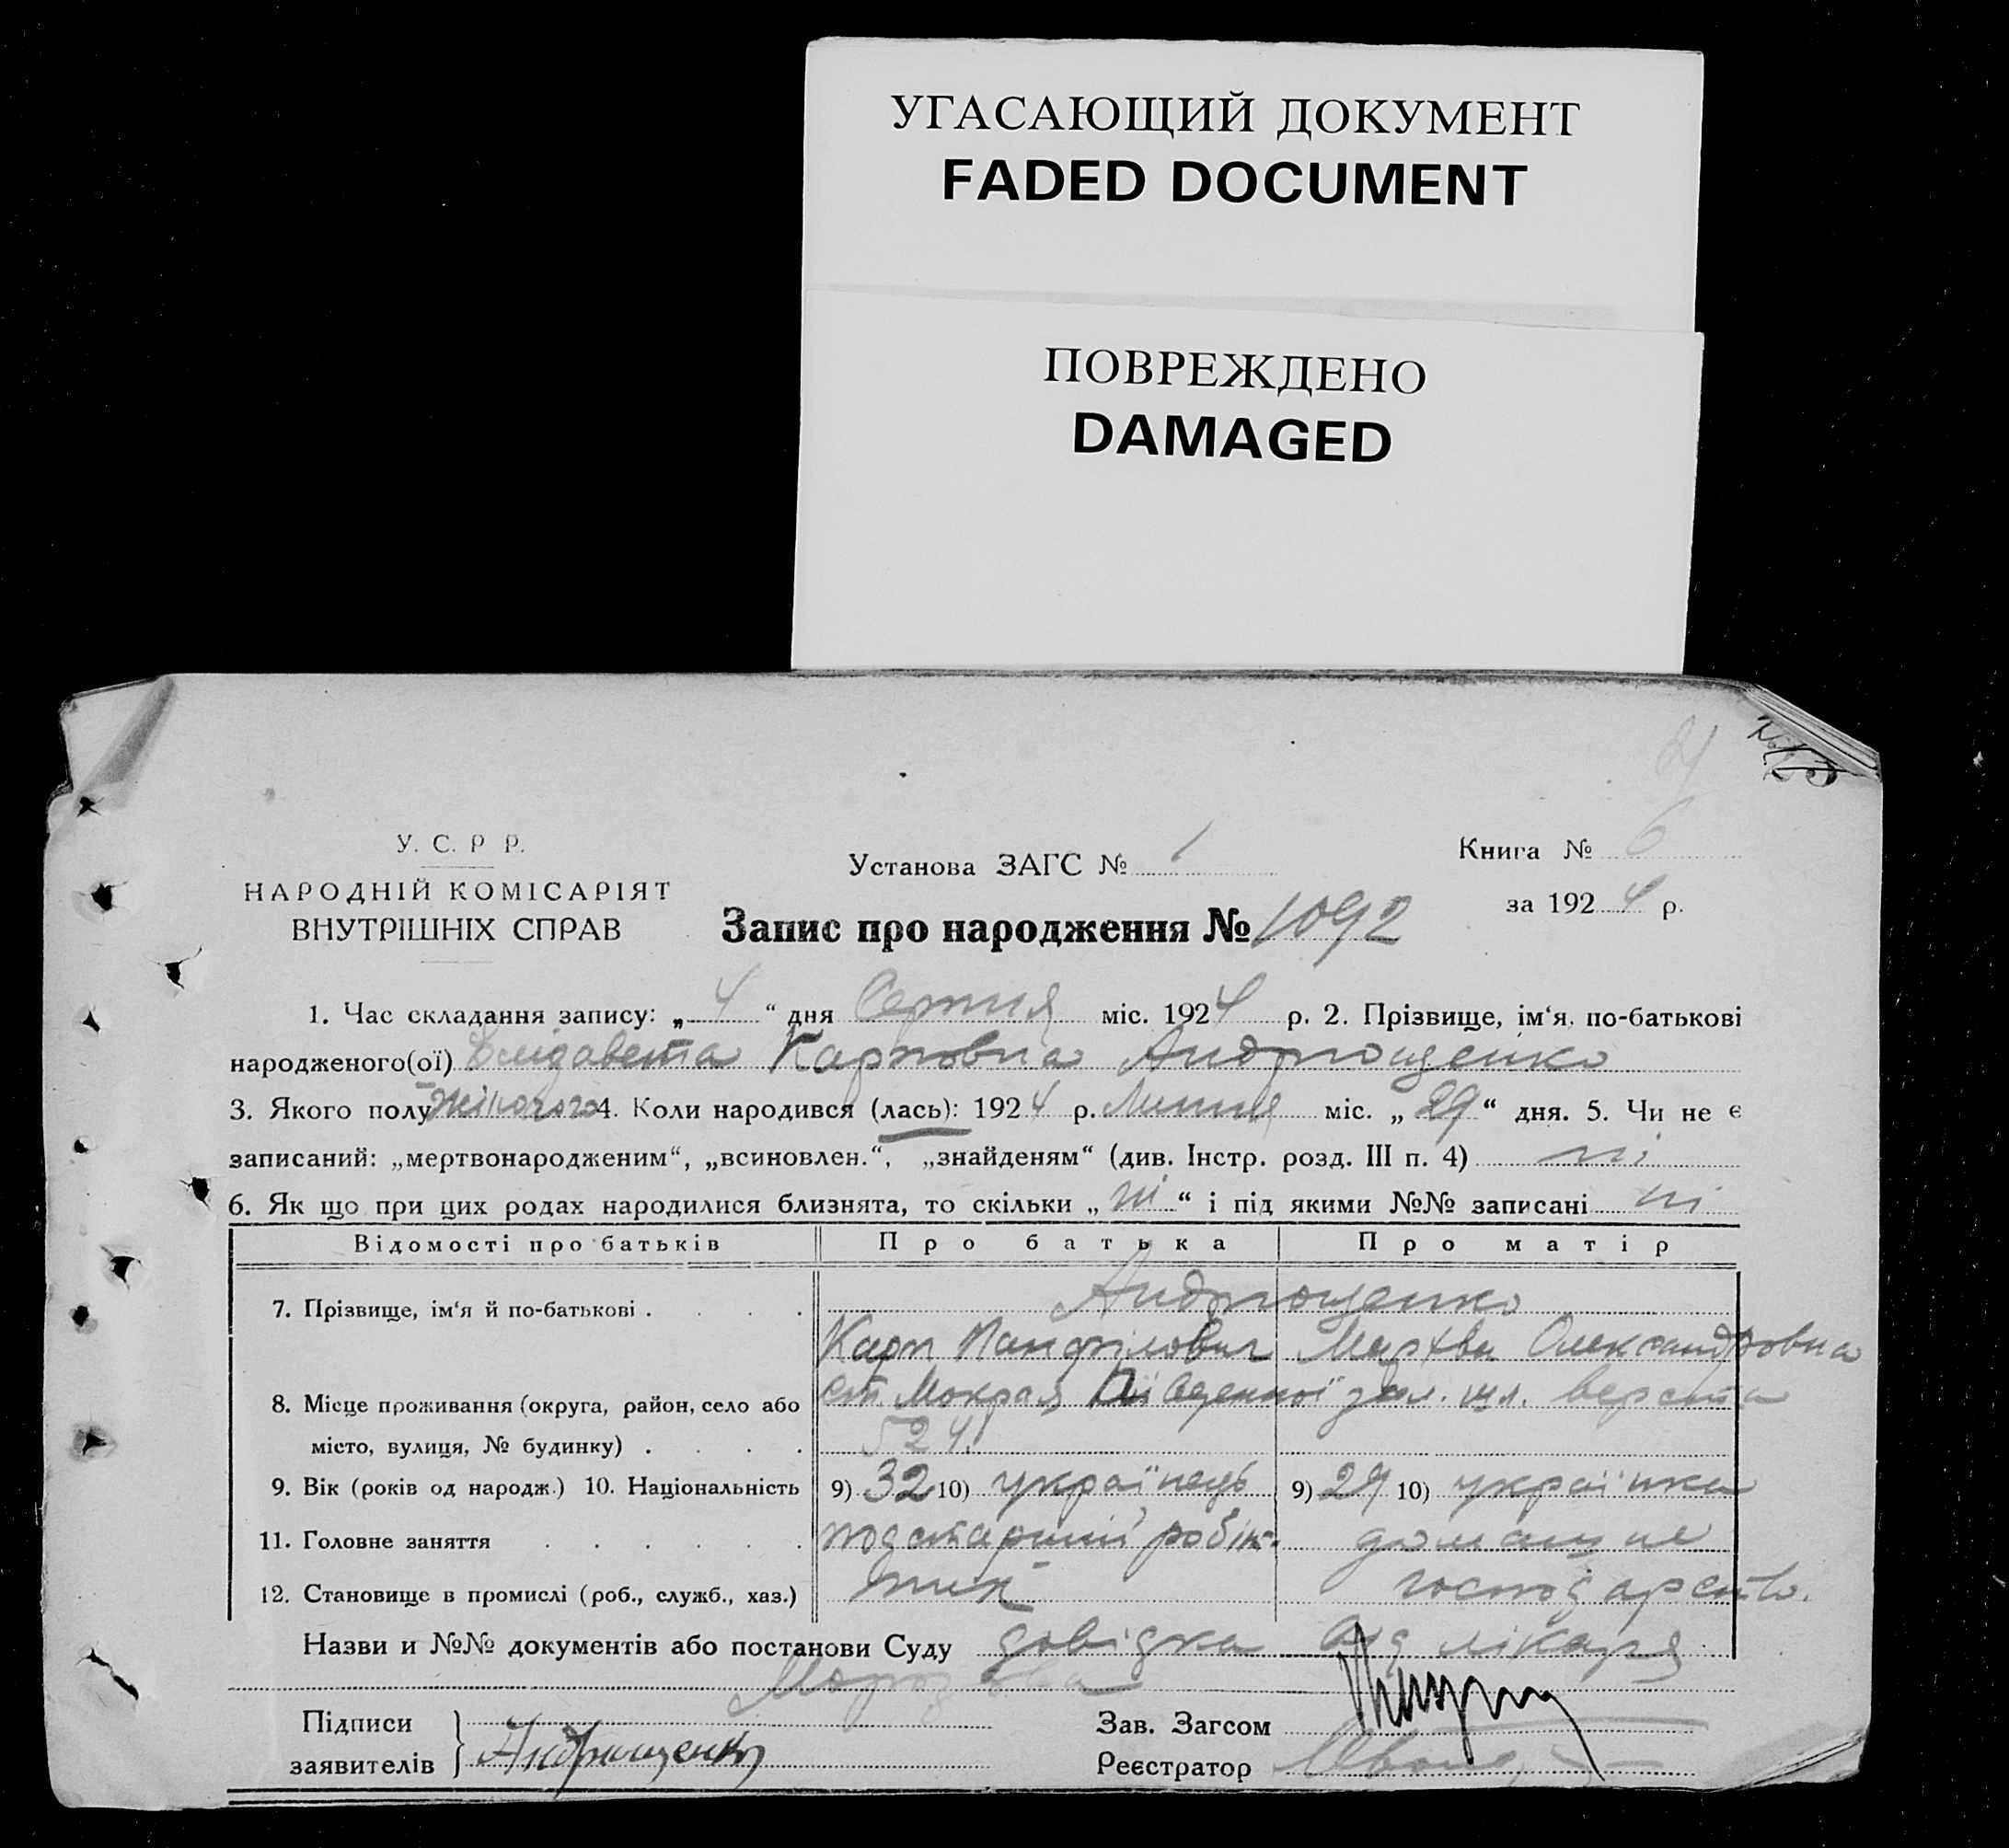 УГАСАЮЩИЙ ДОКУМЕНТ
FADED DOCUMENT
ПОВРЕЖДЕНО
DAMAGED
У. С. Р Р.
НАРОДНІЙ КОМІСАРІЯТ
ВНУТРІШНІХ СПРАВ
Установа ЗАГС № 1
Книга № 6
за 1924 р.
Запис про народження № 1092
1. Час складання запису: „ 4 “ дня Серпня міс. 1924 р. 2. Прізвище, ім‘я, по-батькові
народженого(ої) Єлізавета Карповна Андрющенко
3. Якого полу жіночого 4. Коли народився (лась): 1924 р. Липня міс. „ 29 “ дня. 5. Чи не є
записаний: „мертвонародженим“, „всиновлен.“, „знайденям“ (див. Інстр. розд. III п. 4) ні
6. Як що при цих родах народилися близнята, то скільки „ ні “ і під якими №№ записані ні
Відомості про батьків Про батька Про матір
7. Прізвище, ім‘я й по-батькові . . . . Андрющенко
Карп Панфілович Мархва Олександровна
8. Місце проживання (округа, район, село або ст. Мокрая Південної зал. шл. верста
місто, вулиця, № будинку) . . . . 524.
9. Вік (років од народж.) 10. Національність 9) 32 10) українець 9) 29 10) українка
11. Головне заняття . . . . . . подстарший робіт- домашнє
12. Становище в промислі (роб., служб., хаз.) ник господарство.
Назви и №№ документів або постанови Суду довідка від лікаря
Морозова
Підписи
заявителів
Андрющенко
Зав. Загсом
Реєстратор